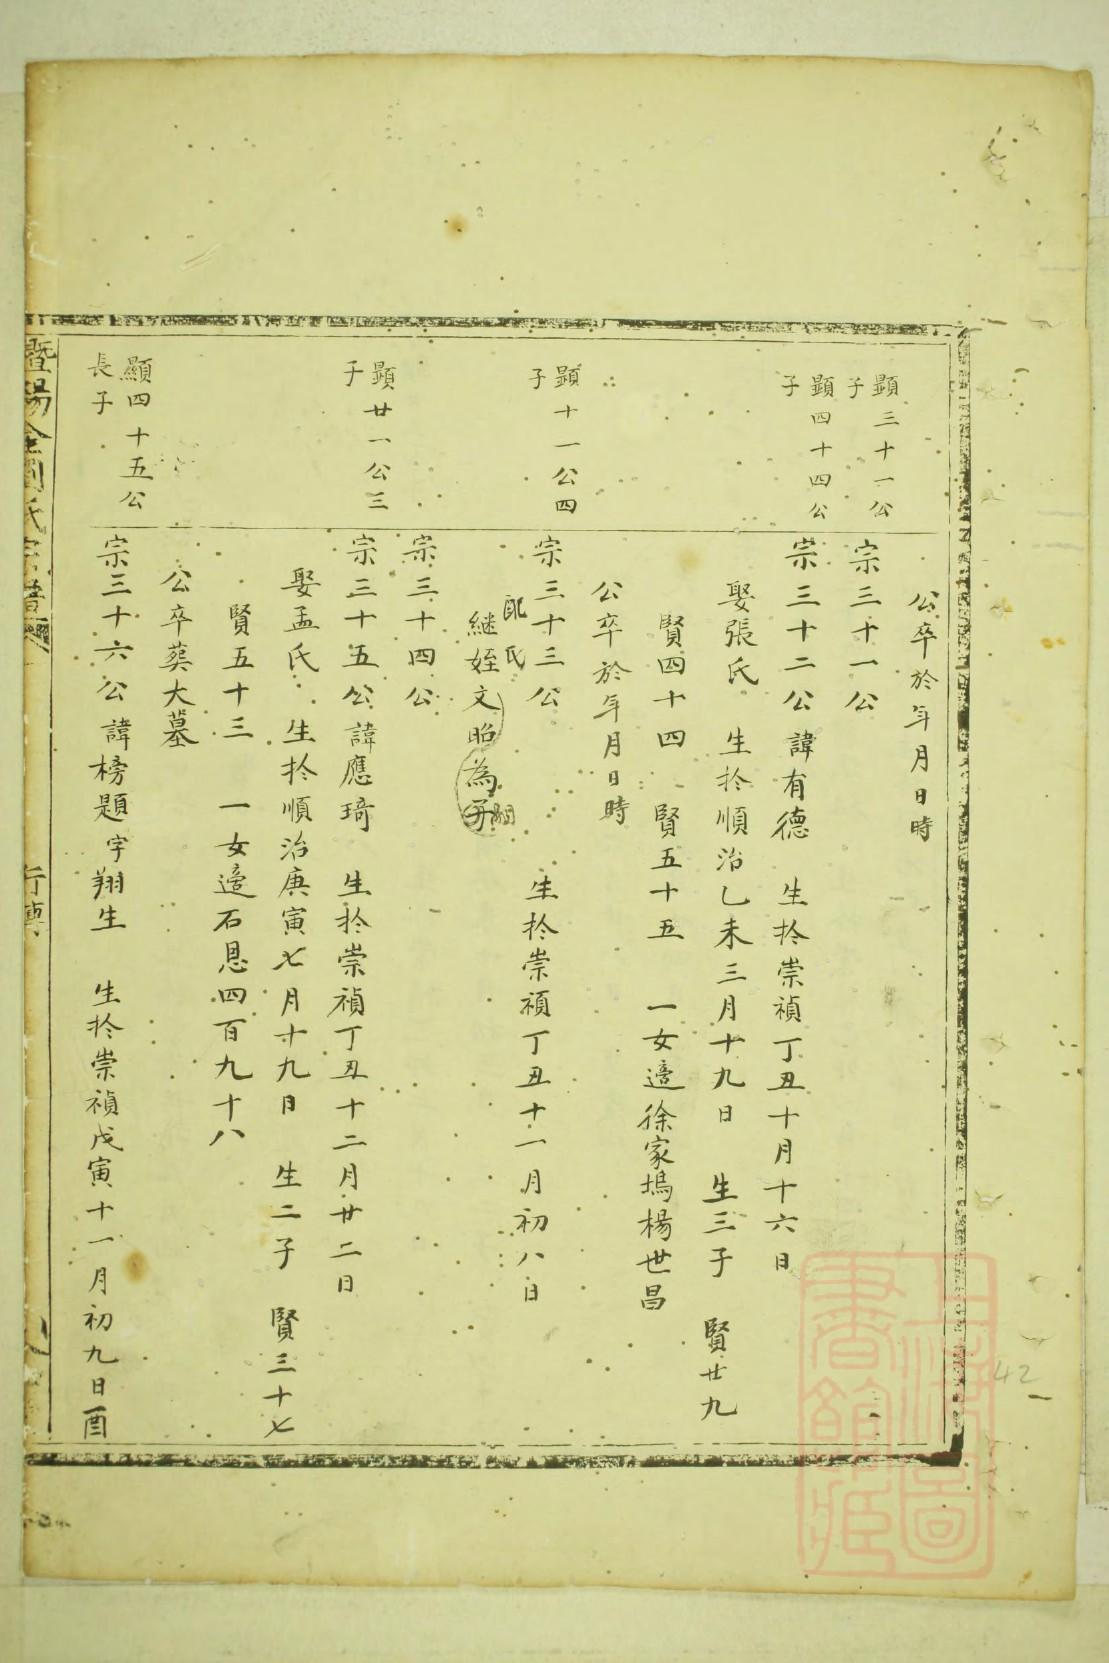 公卒於年月日時
顯三十一公
子
宗三十一公
顯四十四公
子
宗三十二公諱有德　生於崇禎丁丑十月十六日
娶張氏　生於順治乙未三月十九日　生三子　賢廿九
賢四十四　賢五十五　一女適徐家塢楊世昌
公卒於年月日時
顯十一公四
子
宗三十三公　生於崇禎丁丑十一月初八日
配　氏
継姪文昭為
嗣
宗三十四公
顯廿一公三
子
宗三十五公諱應琦　生於崇禎丁丑十二月廿二日
娶孟氏　生於順治庚寅七月十九日　生二子　賢三十七
賢五十三　一女適石恩四百九十八
公卒葬大墓
顯四十五公
長子
宗三十六公諱榜題字翔生　生於崇禎戊寅十一月初九日酉
暨陽金劉氏宗譜
行傳
上海圖書館藏
42